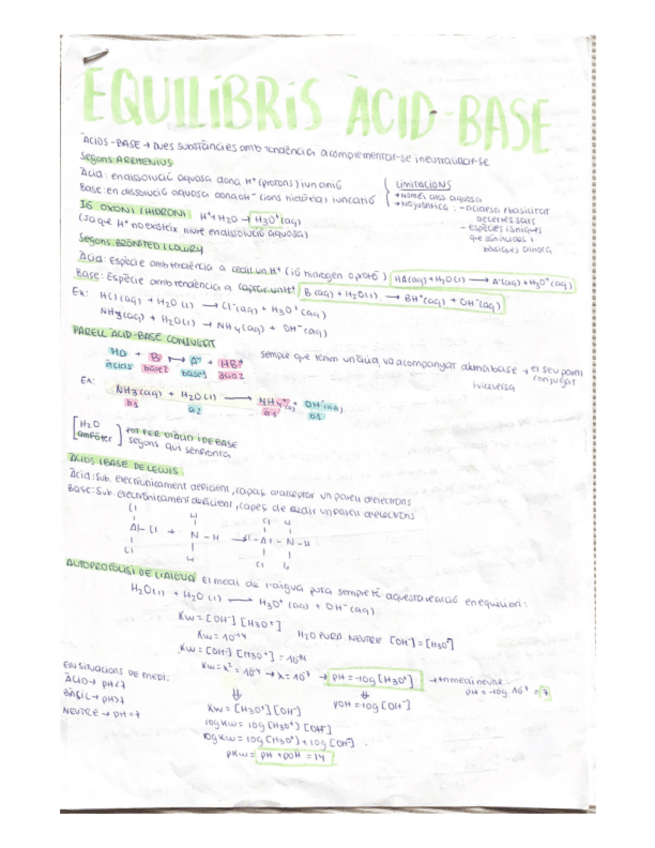 EQUILIBRIS ÀCID-BASE
ÀCIDS-BASE → Dues substàncies amb tendència a complementar-se i neutralitzar-se
Segons ARRHENIUS
Àcid: en dissolució aquosa dona H⁺ (protons) i un anió
Base: en dissolució aquosa dona OH⁻ (ions hidròxid) i un catió
Limitacions
→ Només diss. aquosa
→ No justifica: - acidesa i basicitat
d'certes sals
- espècies iòniques
que són àcides i
bàsiques alhora
IÓ OXONI I HIDRONI H⁺ + H₂O → H₃O⁺ (aq)
(Ja que H⁺ no existeix lliure en dissolució aquosa)
Segons BRÖNSTED I LOWRY
Àcid: Espècie amb tendència a cedir un H⁺ (ió hidrogen o protó) HA(aq) + H₂O(l) → A⁻(aq) + H₃O⁺(aq)
Base: Espècie amb tendència a captar un H⁺ B(aq) + H₂O(l) → BH⁺(aq) + OH⁻(aq)
Ex: HCl(aq) + H₂O(l) → Cl⁻(aq) + H₃O⁺(aq)
NH₃(aq) + H₂O(l) → NH₄(aq) + OH⁻(aq)
PARELL ÀCID-BASE CONJUGAT
HA + B ↔ A⁻ + HB⁺ sempre que tenim un àcid, va acompanyat d'una base → el seu parell
àcid1 base2 base1 àcid2 i viceversa conjugat
Ex: NH₃(aq) + H₂O(l) → NH₄⁺(aq) OH⁻(aq)
b1 a2 a1 b1
[H₂O amfòter] pot FER D'ÀCID I DE BASE
segons qui s'enfronta
ÀCIDS I BASE DE LEWIS
Àcid: Sub. electrònicament deficient, capaç d'acceptar un parell d'electrons
Base: Sub. electrònicament deficient, capaç de cedir un parell d'electrons
Cl H Cl H
Al-Cl + N-H → Cl-Al-N-H
Cl H Cl H
AUTOPROTÒLISI DE L'AIGUA El medi de l'aigua pura sempre té aquesta reacció en equilibri:
H₂O(l) + H₂O(l) → H₃O⁺(aq) + OH⁻(aq)
Kw = [OH⁻] [H₃O⁺]
Kw = 10⁻¹⁴ H₂O PURA NEUTRE [OH⁻] = [H₃O⁺]
Kw = [OH⁻] [H₃O⁺] = 10⁻¹⁴
Kw = x² = 10⁻¹⁴ → x = 10⁻⁷ → pH = -log [H₃O⁺] → en medi neutre:
pH = -log 10⁻⁷ = 7
EN SITUACIONS DE MEDI:
ÀCID → pH<7
BÀSIC → pH>7
NEUTRE → pH=7
⇓ ⇓
Kw = [H₃O⁺] [OH⁻] pOH = log [OH⁻]
log Kw = log [H₃O⁺] [OH⁻]
log Kw = log [H₃O⁺] + log [OH⁻]
pKw = pH + pOH = 14